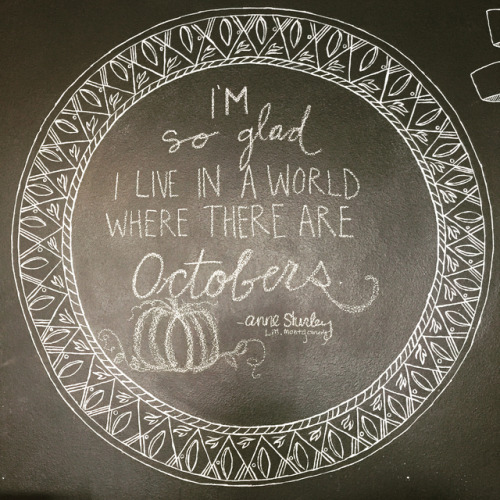 I'M
so glad
I LIVE IN A WORLD
WHERE THERE ARE
Octobers.
-anne Shirley
L.M. Montgomery